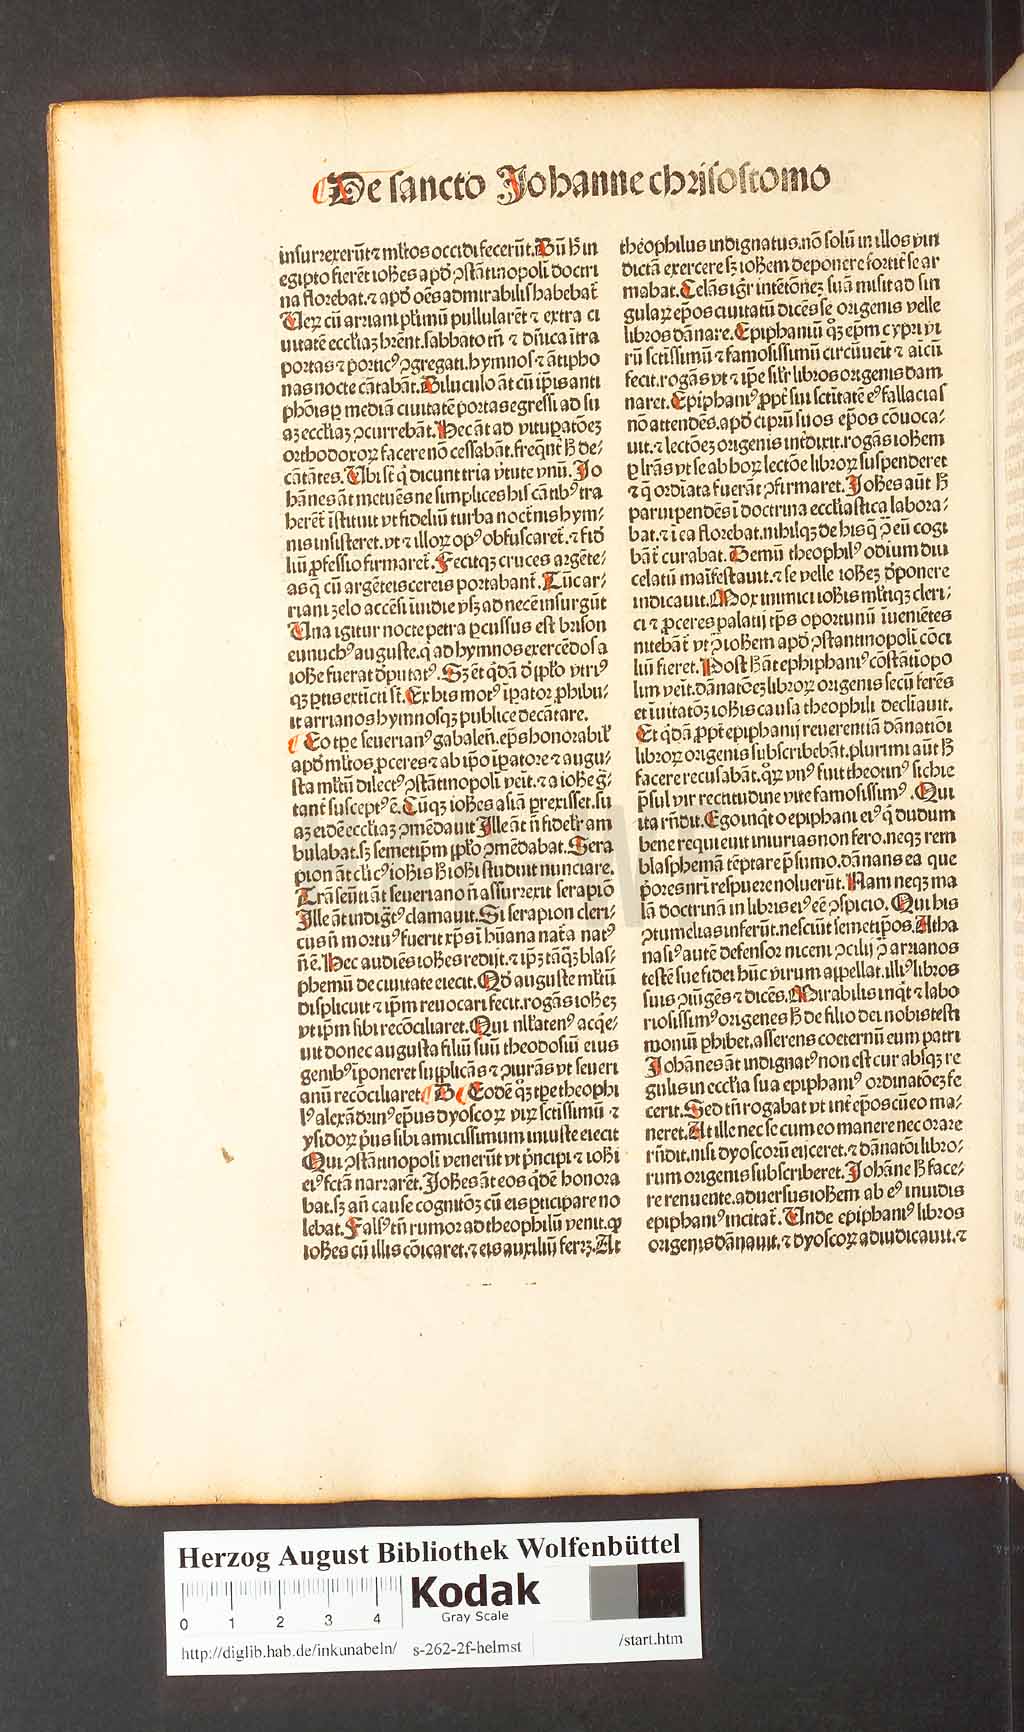 De sancto Johanne chrisostomo
insurrexerūt ⁊ ml̓tos occidi fecerūt. Dū h̄ in
egipto fierēt ioh̄es apd̓ ꝯstātinopolī doctri
na florebat. ⁊ apd̓ oēs admirabilis habebat̄
Ueꝝ cū arriani pl̓imū pullularēt ⁊ extra ci
uitatē eccl̓iaꝫ h̄rent. sabbato tn̄ ⁊ dn̄ica ītra
portas ⁊ portic⁹ ꝯgregati. hymnos ⁊ ātipho
nas nocte cātabāt. Diluculo āt cū ip̄is anti
phōis ꝑ mediā ciuitatē portas egressi ad su
aꝫ eccl̓iaꝫ ꝯcurrebāt. Hec āt ad vituꝑatōeꝫ
orthodoxoꝝ facere nō cessabāt. freq̄nt̓ h̄ de-
cātātes. Ubi sūt q̇ dicunt tria v̓tute vnū. Jo
hānes āt metuēs ne simplices his cātib⁹ tra
herēt̄ īstituit vt fideliū turba noct̓nis hym-
nis insisteret. vt ⁊ illoꝝ op⁹ obfuscaret̄. ⁊ fid̓
liū ꝓfessio firmaret̄. Fecitqꝫ cruces argēte-
as q̄ cū argēteis cereis portabant̄. Tūc ar-
riani zelo accēsi īuidie vsqꝫ ad necē insurgūt
Una igitur nocte petra ꝑcussus est brison
eunuch⁹ auguste. q̇ ad hymnos exercēdos a
ioh̄e fuerat d̓putat⁹. Sꝫ et q̇dā d̓ pp̄lo vtri⁹
qꝫ ꝑtis extīcti sūt. Ex his mot⁹ īꝑator ꝓhibu-
it arrianos hymnosqꝫ publice decātare.
Eo tꝑe seuerian⁹ gabaleñ. ep̄s honorabil̓
apd̓ ml̓tos ꝓceres ⁊ ab ip̄o īꝑatore ⁊ augu-
sta ml̓tū dilect⁹ ꝯstātinopolī veīt. ⁊ a ioh̄e g̓-
tant̓ suscept⁹ ē. Cūqꝫ ioh̄es asiā ꝑrexisset. su
aꝫ eidē eccl̓iaꝫ ꝯmēdauit Jlle āt nō fidelr̓ am
bulabat. sꝫ semetip̄m pp̄lo ꝯmēdabat. Sera
pion āt cl̓ic⁹ ioh̄is h̄ ioh̄i studuit nunciare.
Trāseūti āt seueriano nō assurrexit serapiō
Jlle āt indignat⁹ clamauit. Si serapion cleri-
cus nō mortu⁹ fuerit xp̄s ī hūana nat̄a nat⁹
nō ē. Hec audiēs ioh̄es redijt. ⁊ ip̄ꝫ tāqꝫ blas-
phemū de ciuitate eiecit. Qd̓ auguste ml̓tū
displicuit ⁊ ip̄m reuocari fecit. rogās ioh̄eꝫ
vt ip̄m sibi recōciliaret. Qui nll̓aten⁹ acq̇e-
uit donec augusta filiū suū theodosiū eius
genib⁹ īponeret supplicās ⁊ ꝯiurās vt seueri
anū recōciliaret. B Eodē q̄ꝫ tꝑe theophi
l⁹ alexādrin⁹ ep̄us dyoscoꝝ viꝝ sctissimū ⁊
ysidoꝝ p̓us sibi amicissimum iniuste eiecit
Qui ꝯstātinopolī venerūt vt p̄ncipi ⁊ ioh̄i
ei⁹ fctām narrarēt. Johes āt eos q̇dē honora
bat. sꝫ añ cause cognitōꝫ cū eis ꝑticipare no
lebat. Fals⁹ tn̄ rumor ad theophilū venit. ꝙ
ioh̄es cū illis cōicaret. ⁊ eis auxiliū ferꝫ. At
theophilus indignatus. nō solū in illos vin
dictā exercere sꝫ ioh̄em deponere fortit̓ se ar
mabat. Celās igr̄ intētōnez suā misit ad sin
gulaꝝ ep̄os ciuitatū dicēs se origenis velle
libros dānare. Epiphaniū q̄ꝫ ep̄m cypri vi
rū sctissimū ⁊ famosissimū circūueīt ⁊ aīcū
fecit. rogās vt ⁊ ip̄e sil̓r libros origenis dam
naret. Epiphani⁹ ꝓpt̓ sui sctitatē e⁹ fallacias
nō attendēs. apd̓ ciprū suos ep̄os cōuoca-
uit. ⁊ lectōeꝫ origenis int̓dixit. rogās ioh̄em
ꝑ lr̄as vt se ab hoꝝ lectōe libroꝝ suspenderet
⁊ q̄ ordīata fuerāt ꝯfirmaret. Joh̄es aūt h̄
paruipendēs ī doctrina eccl̓iastica labora-
bat. ⁊ ī ea florebat. nihilqꝫ de his q̄ ꝯ̄ eū cogi
bāt̄ curabat. Demū theophil⁹ odium diu
celatū maīfestauit. ⁊ se velle ioh̄eꝫ d̓ponere
indicauit. Mox inimici ioh̄is ml̓tiqꝫ cleri-
ci ⁊ ꝓceres palatij tp̄s oportunū īueniētes
nitebāt̄ vt ꝯ̄ ioh̄em apd̓ ꝯstantinopolī cōci
liū fieret. Post h̄ āt ephiphani⁹ cōstātiōpo
lim veīt. dānatōeꝫ libroꝝ origenis secū ferēs
et īuitatōꝫ ioh̄is causa theophili declīauit.
Et q̇dā ꝓpt̓ epiphanij reuerentiā dānatiōi
libroꝝ origenis subscribebāt. plurimi aūt h̄
facere recusabāt. q̄ꝝ vn⁹ fuit theotin⁹ sichie
p̄sul vir rectitudine vite famosissim⁹. Qui
ita rn̄dit. Ego inq̇t o epiphani ei⁹ q̇ dudum
bene requieuit iniurias non fero. neqꝫ rem
blasphemā tēptare p̄sumo. dānans ea que
p̓ores nr̄i respuere noluerūt. Nam neqꝫ ma
lā doctrinā in libris ei⁹ eē ꝯspicio. Qui his
ꝯtumelias inferūt. nesciūt semetip̄os. Atha
nasi⁹ autē defensor niceni ꝯcilij ꝯ̄ arrianos
testē sue fidei hūc virum appellat. illi⁹ libros
suis ꝯiūgēs ⁊ dicēs. Mirabilis inq̇t ⁊ labo
riosissim⁹ origenes h̄ de filio dei nobis testi
moniū ꝑhibet. asserens coeternū eum patri
Johānes āt indignat⁹ non est cur absqꝫ re
gulis in eccl̓ia sua epiphani⁹ ordinatōeꝫ fe
cerit. Sed tn̄ rogabat vt int̓ ep̄os cū eo ma-
neret. At ille nec se cum eo manere nec orare
rn̄dit. nisi dyoscorū eijceret. ⁊ dānatōi libro-
rum origenis subscriberet. Johāne h̄ face-
re renuente. aduersus ioh̄em ab e⁹ inuidis
epiphani⁹ incitat̄. Unde epiphani⁹ libros
origenis dānauit. ⁊ dyoscoꝝ adiudicauit. ⁊
Herzog August Bibliothek Wolfenbüttel
0 1 2 3 4
Kodak
Gray Scale
http://diglib.hab.de/inkunabeln/ s-262-2f-helmst /start.htm